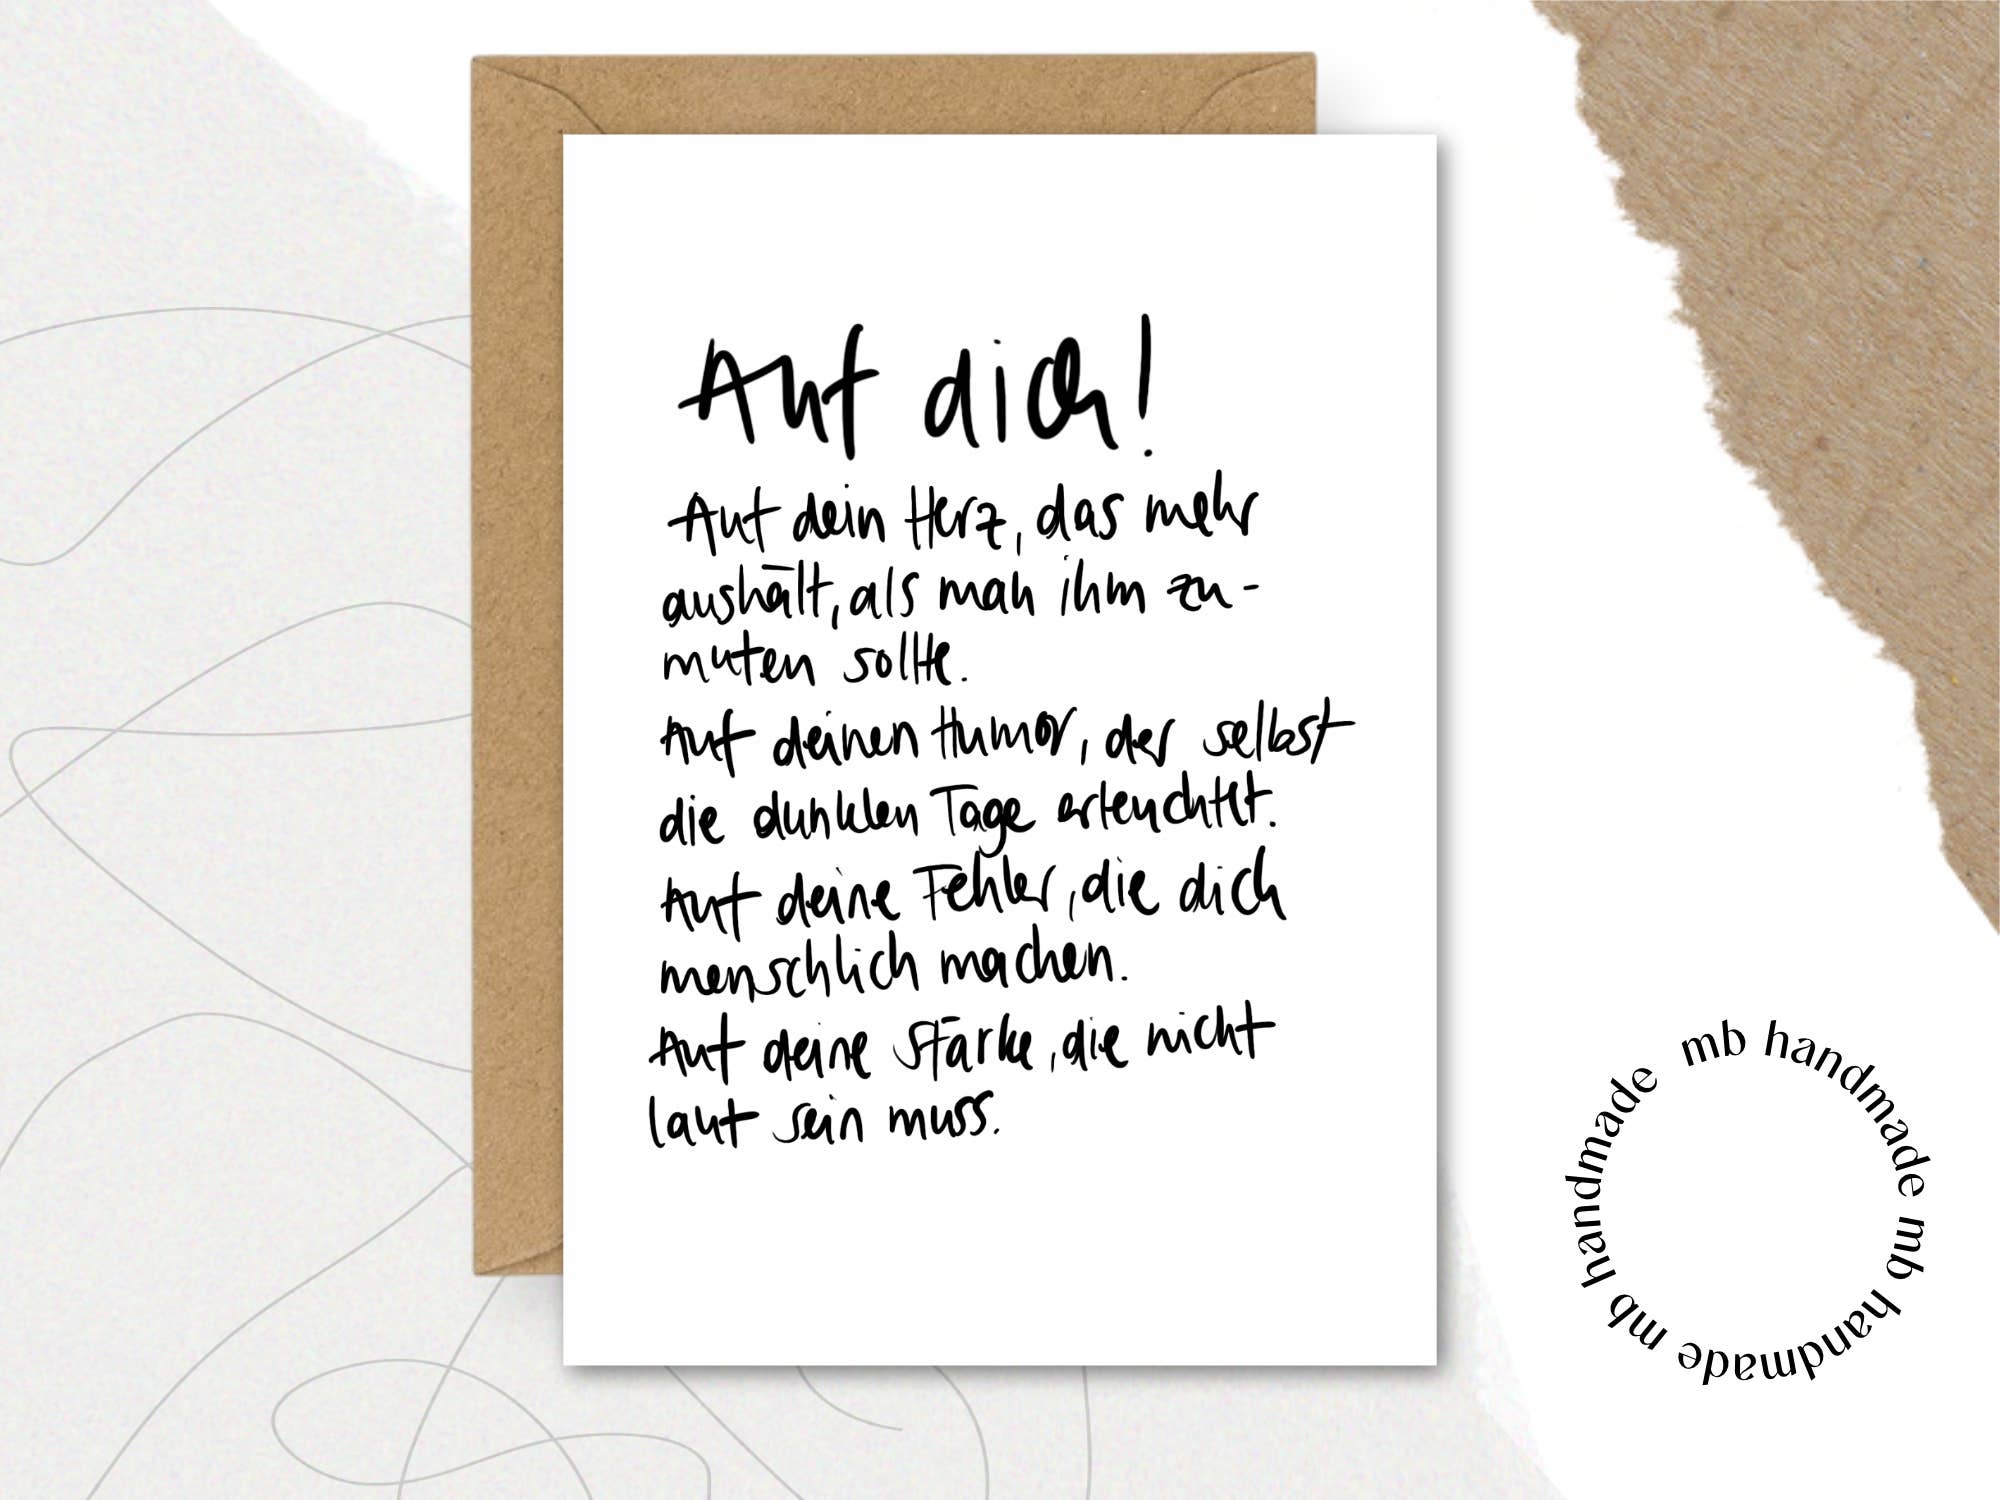 Auf dich!
Auf dein Herz, das mehr
aushält, als man ihm zu-
muten sollte.
Auf deinen Humor, der selbst
die dunklen Tage erleuchtet.
Auf deine Fehler, die dich
menschlich machen.
Auf deine Stärke, die nicht
laut sein muss.
mb handmade mb handmade mb handmade